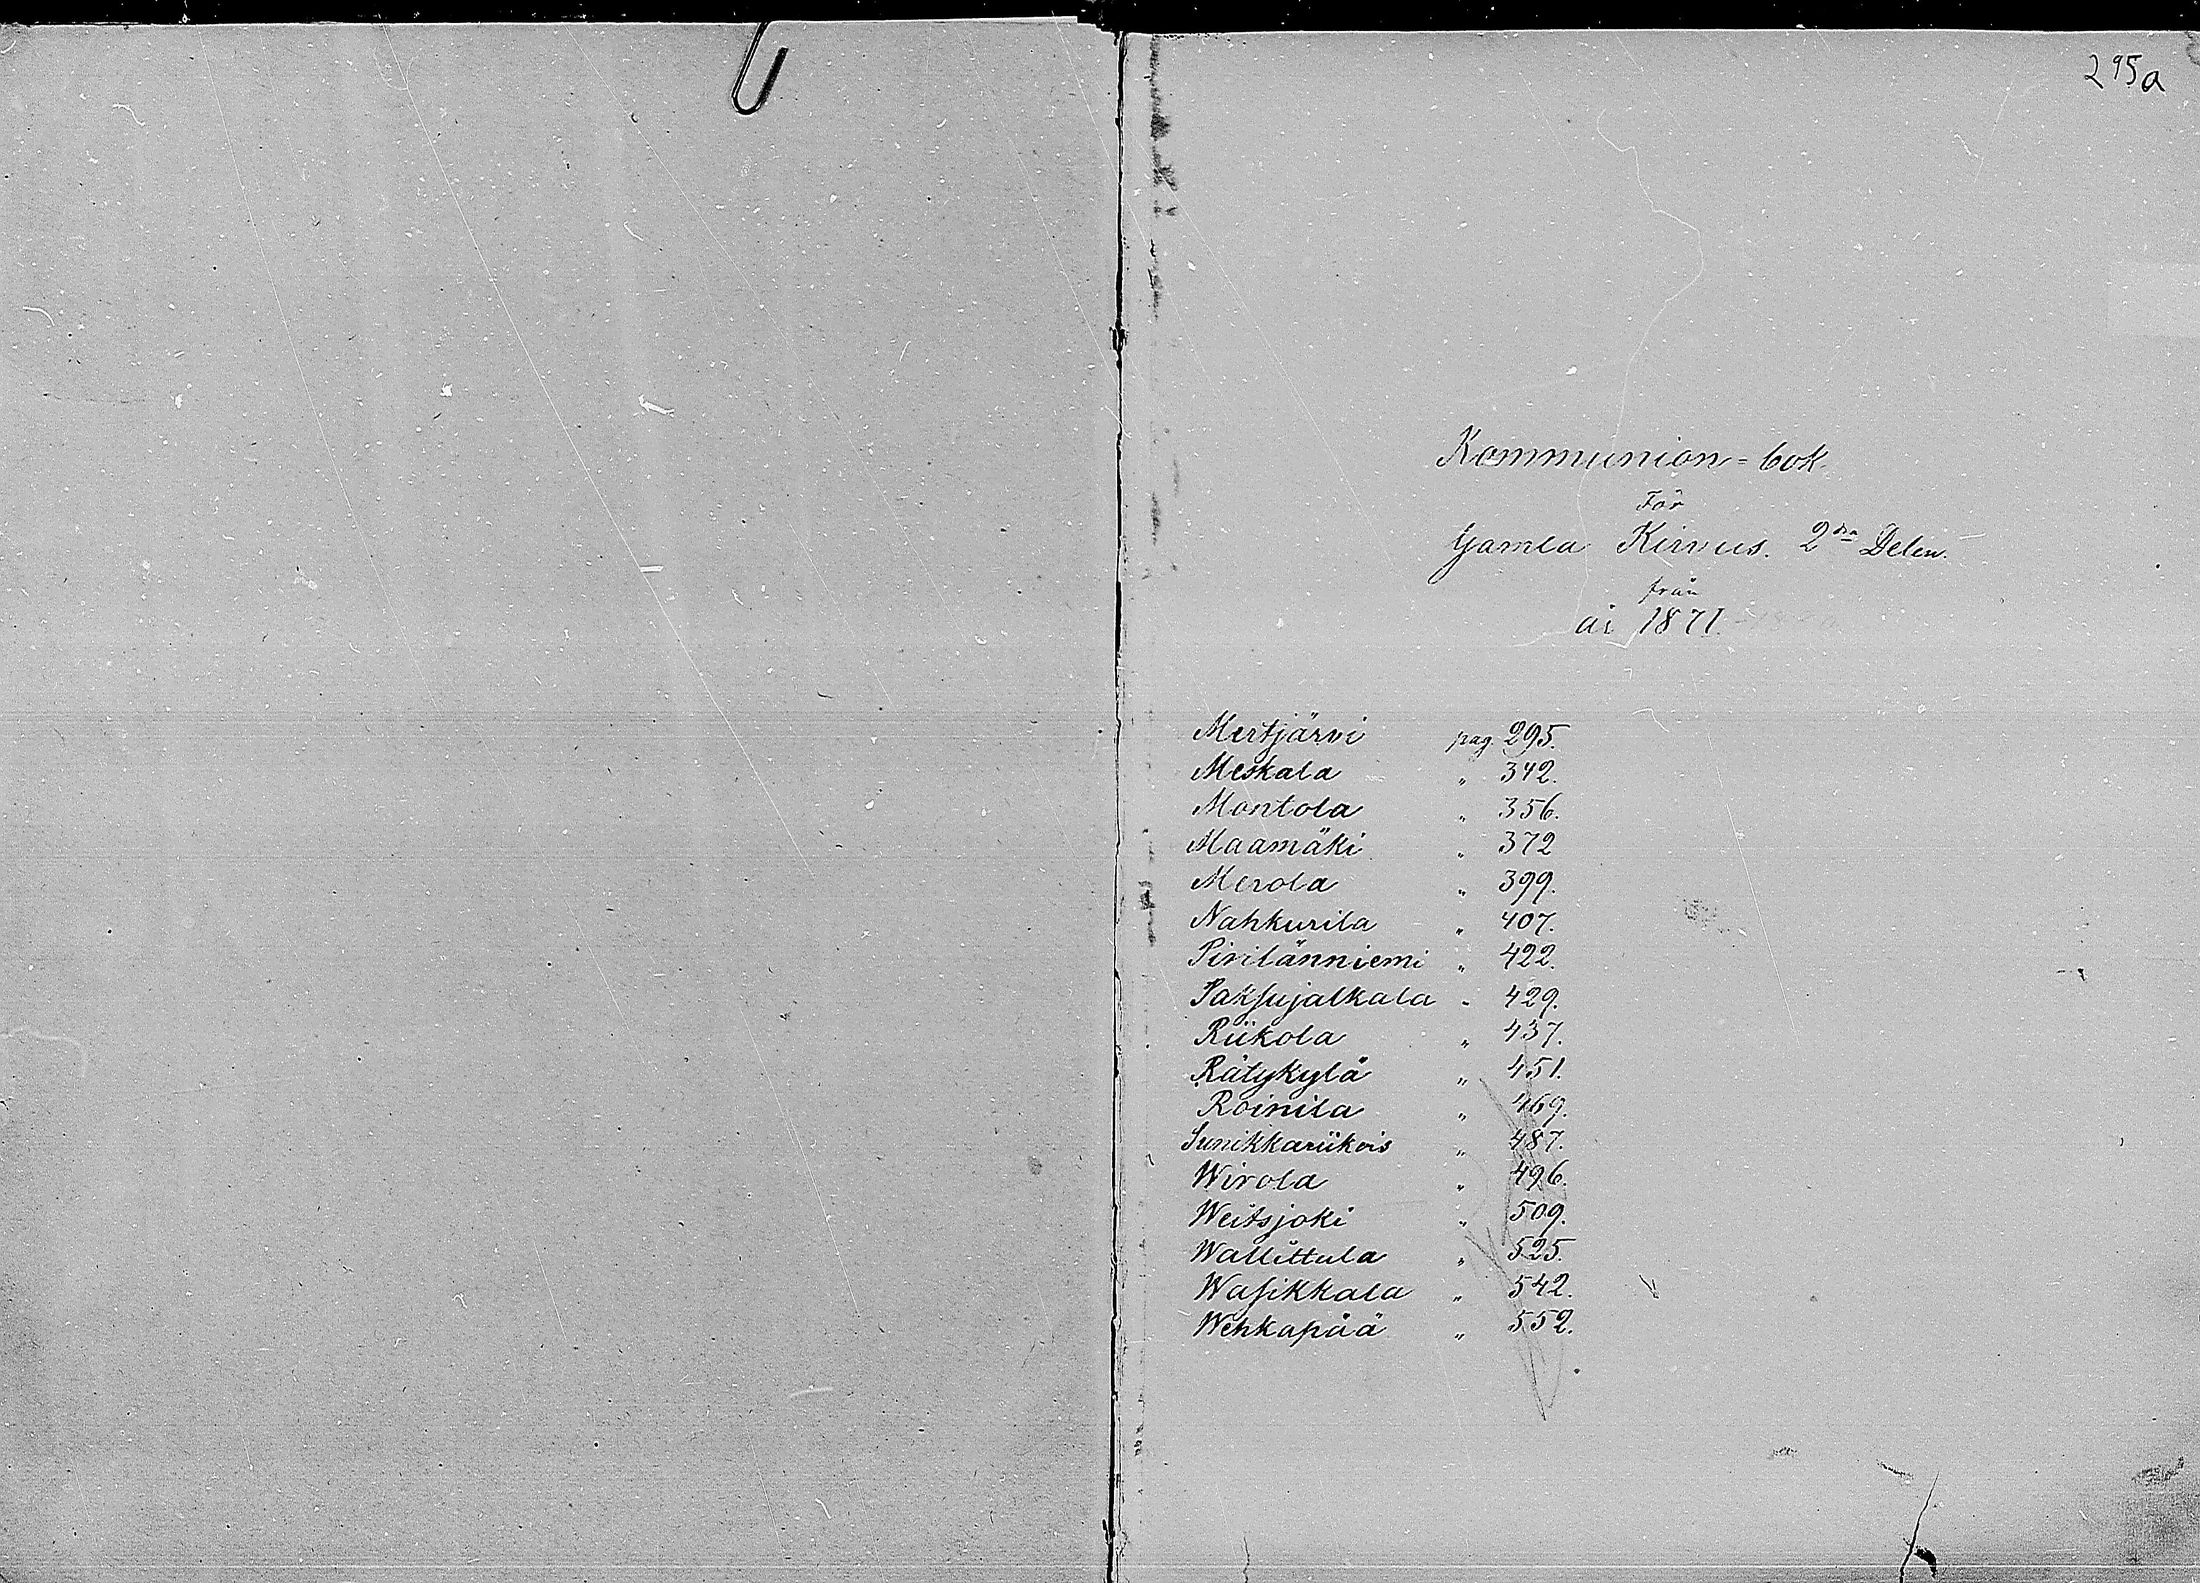 295a
Kommunion=bok
För
Gamla Kirvus. 2dra Delen.
från
år 1871.
Mertjärvi pag. 295.
Meskala " 342.
Montola " 356.
Maamäki " 372
Merola " 399.
Nahkurila " 407.
Pirilänniemi " 422.
Paksujalkala " 429.
Riikola " 437.
Rätykylä " 451.
Roinila " 469.
Sunikkariikois " 487.
Wirola " 496.
Weitsjoki " 509.
Wallittula " 525.
Wasikkala " 542.
Wehkapää " 552.